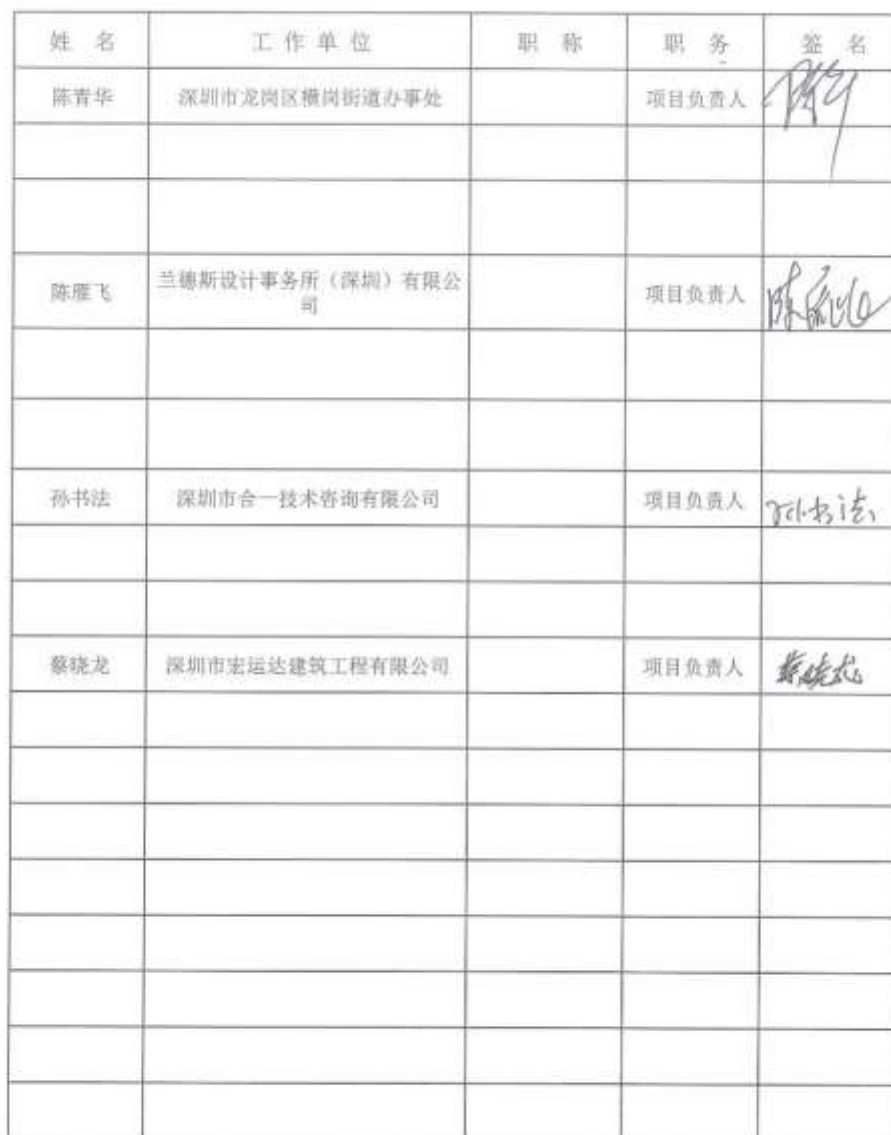 姓 名 工 作 单 位 职 称 职 务 签 名
陈青华 深圳市龙岗区横岗街道办事处 项目负责人
陈雁飞 兰德斯设计事务所（深圳）有限公
司 项目负责人 陈雁飞
孙书法 深圳市合一技术咨询有限公司 项目负责人 孙书法
蔡晓龙 深圳市宏运达建筑工程有限公司 项目负责人 蔡晓龙